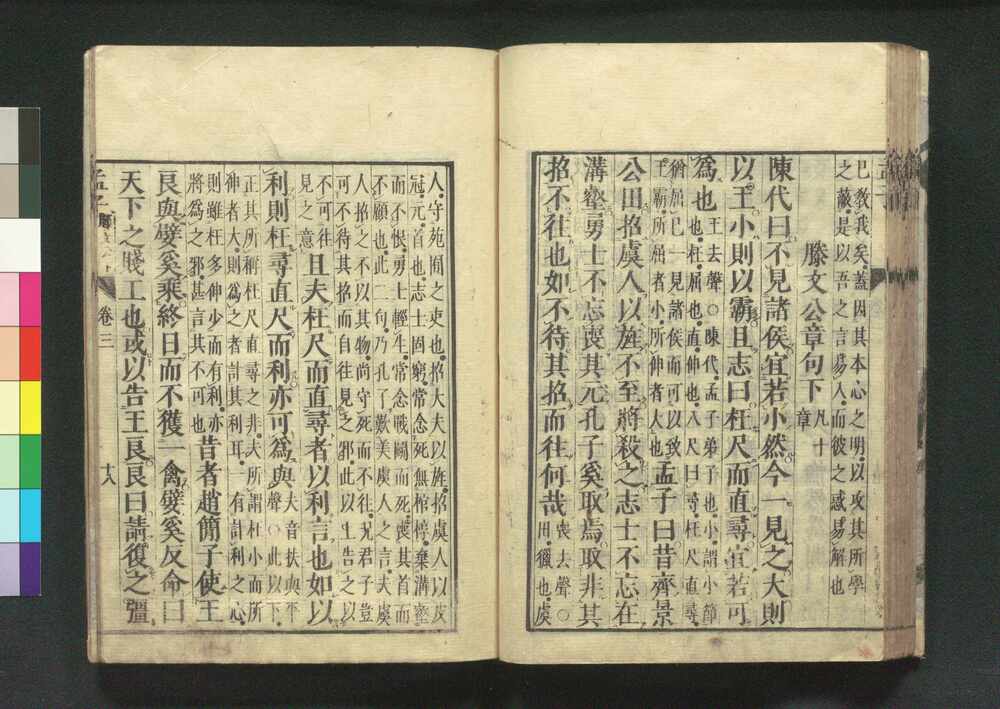 已敎我矣蓋因其本心之明以攻其所學
之蔽是以吾之言易入而彼之惑易解也
滕文公章句下 凡十章
陳代曰不見諸侯宜若小然今一見之大則
以王小則以霸且志曰枉尺而直尋宜若可
爲也 王去聲○陳代孟子弟子也小謂小節
也枉屈也直伸也八尺曰尋枉尺直尋
猶屈己一見諸侯而可以致
王霸所屈者小所伸者大也 孟子曰昔齊景
公田招虞人以旌不至將殺之志士不忘在
溝壑勇士不忘喪其元孔子奚取焉取非其
招不往也如不待其招而往何哉 喪去聲○
田獵也虞
人守苑囿之吏也招大夫以旌招虞人以皮
冠元首也志士固窮常念死無棺槨棄溝壑
而不恨勇士輕生常念戰鬭而死喪其首而
不顧也此二句乃孔子歎美虞人之言夫虞
人招之不以其物尚守死而不往况君子豈
可不待其招而自往見之邪此以上告之以
不可往
見之意 且夫枉尺而直尋者以利言也如以
利則枉尋直尺而利亦可爲與 夫音扶與平
聲○此以下
正其所稱枉尺直尋之非夫所謂枉小而所
伸者大則爲之者計其利耳一有計利之心
則雖枉多伸少而有利亦
將爲之邪甚言其不可也 昔者趙簡子使王
良與嬖奚乘終日而不獲一禽嬖奚反命曰
天下之賤工也或以告王良良曰請復之彊
孟子
卷三
十八